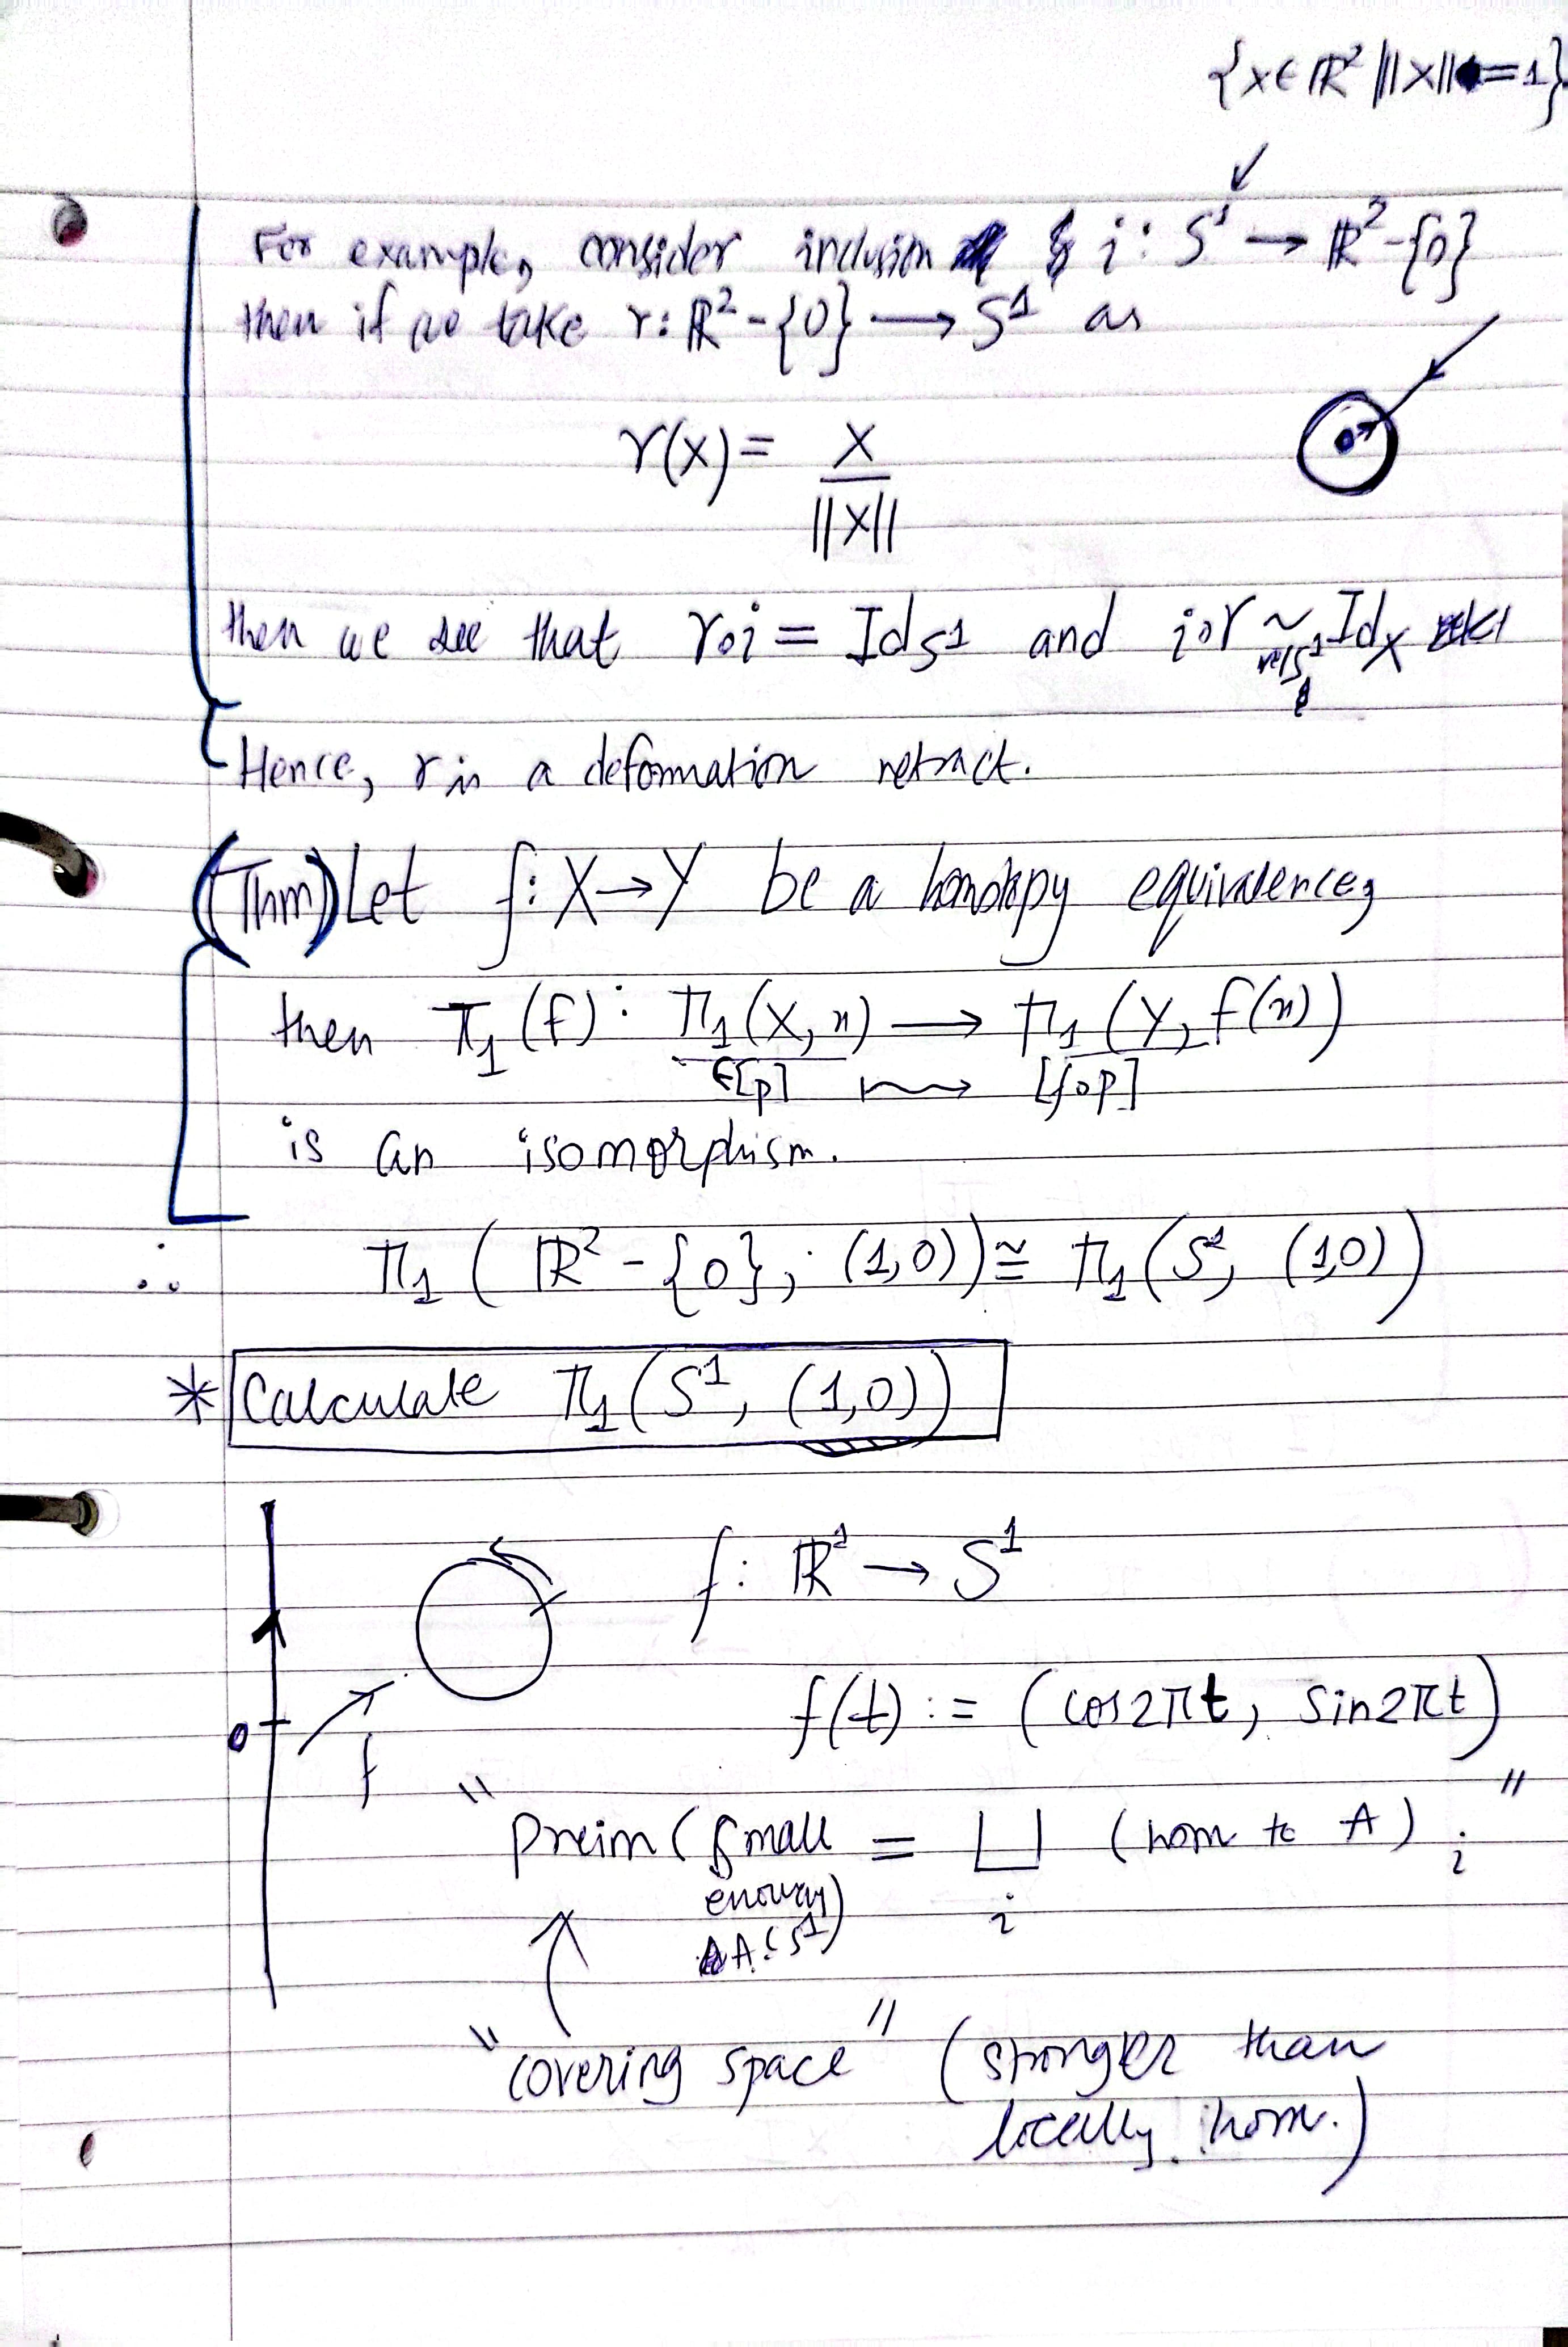 {x∈ℝ² | ||x|| = 1}
↙
For example, consider inclusion i: S¹ → ℝ²-{0}
then if we take r: ℝ²-{0} → S¹ as
r(x) = x / ||x||
then we see that r∘i = Id_S¹ and i∘r ~ rel S¹ Id_X
Hence, r is a deformation retract.
(Thm) Let f: X→Y be a homotopy equivalence,
then π₁(f): π₁(X, x) → π₁(Y, f(x))
∈[p] ↦ [f∘p]
is an isomorphism.
∴ π₁(ℝ²-{0}, (1,0)) ≅ π₁(S¹, (1,0))
* Calculate π₁(S¹, (1,0))
f: ℝ¹ → S¹
0
f(t) := (cos2πt, sin2πt)
f
"Preim(small = ⊔ (hom to A) i"
enough i
A⊂S¹)
"covering space" (stronger than
locally hom.)